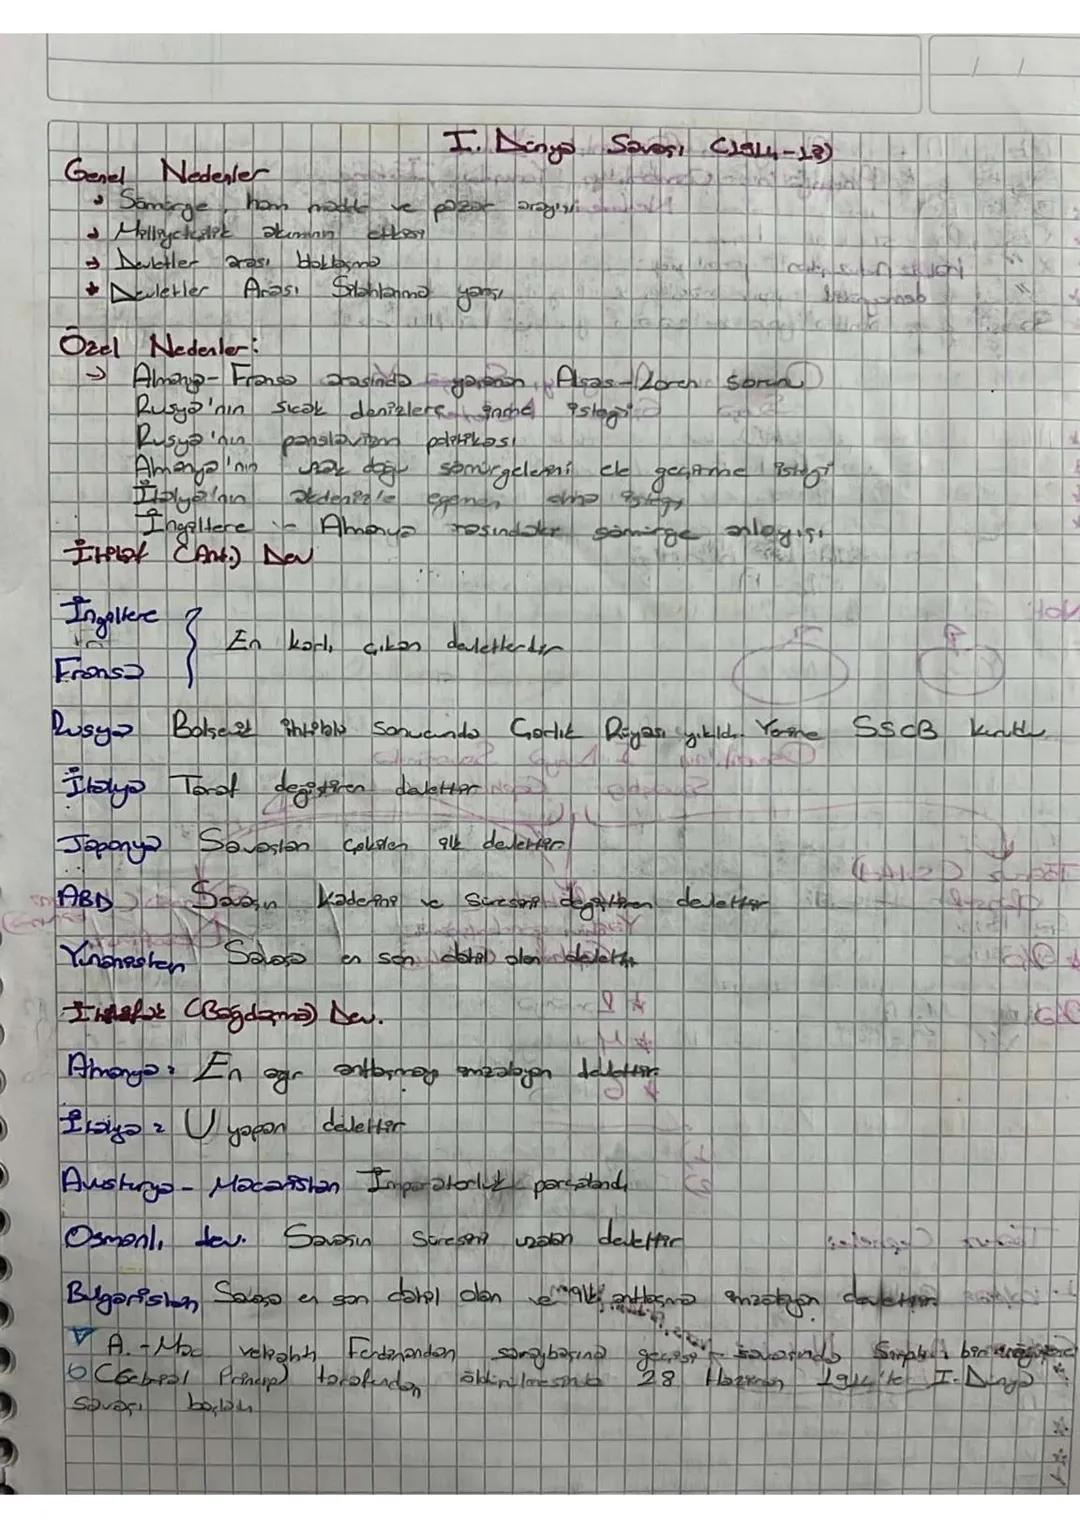 I. Dünya Savaşı (1914-18)
Genel Nedenler
Sömürge, ham madde ve pazar arayışı
Milliyetçilik akımının etkisi
Devletler arası bloklaşma
Devletler Arası Silahlanma yarışı
Özel Nedenler:
→ Almanya-Fransa arasında yaşanan Alsas-Loren sorunu
Rusya'nın sıcak denizlere inme isteği
Rusya'nın panslavizm politikası
Almanya'nın uzak doğu sömürgelerini ele geçirme isteği
İtalya'nın akdeniz'le egemen olma isteği
İngiltere - Almanya arasındaki sömürge anlayışı
İtilaf (Ant.) Dev
İngiltere
En karlı çıkan devletlerdir
Fransa
Rusya Bolşevik ihtilali sonucunda Çarlık Rusyası yıkıldı. Yerine SSCB kuruldu
İtalya Taraf değiştiren devlettir
Japonya Savaştan çekilen ilk devlettir
ABD Savaşın kaderini ve süresini değiştiren devlettir
Yunanistan Savaşa en son dahil olan devlettir
İttifak (Bağdaşma) Dev.
Almanya: En ağır antlaşmayı imzalayan devlettir
İtalya: U yapan devlettir
Avusturya-Macaristan İmparatorluk parçalandı
Osmanlı dev. Savaşın süresini uzatan devlettir
Bulgaristan Savaşa en son dahil olan ve ilk antlaşma imzalayan devlettir
A.-Mac veliahtı Ferdinandın saraybosna gezisi sırasında Sırplı bir
(Gabriel Princip) tarafından öldürülmesinle 28 Haziran 1914'te I. Dünya
savaşı başladı